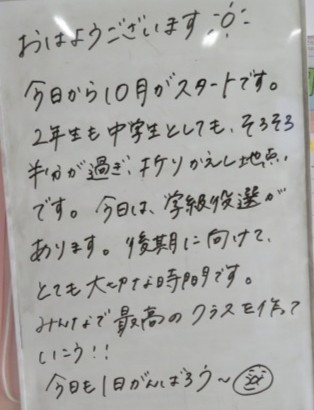 おはようございます
今日から10月がスタートです。
2年生も中学生としても、そろそろ
半分が過ぎ、折りかえし地点
です。今日は、学級役選が
あります。後期に向けて、
とても大切な時間です。
みんなで最高のクラスを作って
いこう!!
今日も1日がんばろう〜